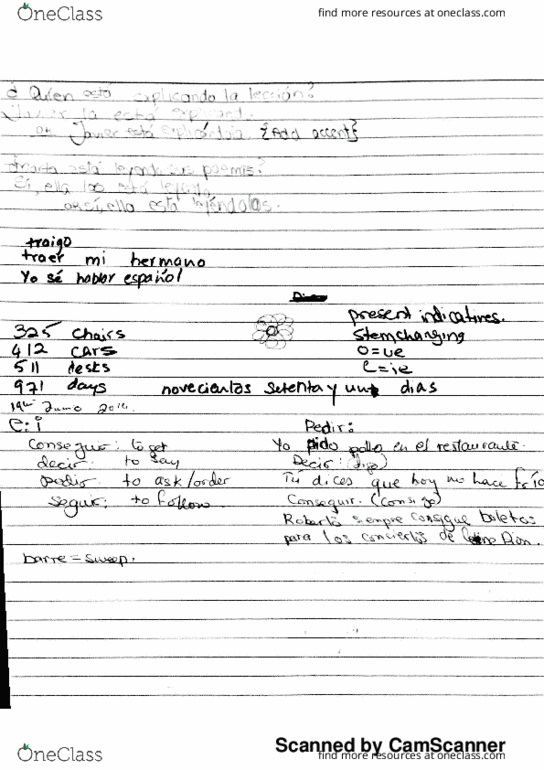 OneClass
find more resources at oneclass.com
¿ Quien está explicando la lección?
Javier la está
or Javier está {Add accent}
está leyendo sus poemas?
Sí, ella los está
ella está leyéndolos.
traigo
traer mi hermano
Yo sé hablar español
present indicatives.
325 chairs Stemchanging
412 cars o=ue
511 desks e=ie
971 days novecientos setenta y un dias
19th Junio
e:i Pedir:
Conseguir: to get Yo pido pollo en el restaurante.
decir: to say Decir: (digo)
pedir: to ask/order Tú dices que hoy no hace frío
seguir: to follow Conseguir. (Consigo)
Roberto siempre consigue boletos
para los conciertos de Dion.
barre = sweep.
Scanned by CamScanner
OneClass
find more resources at oneclass.com